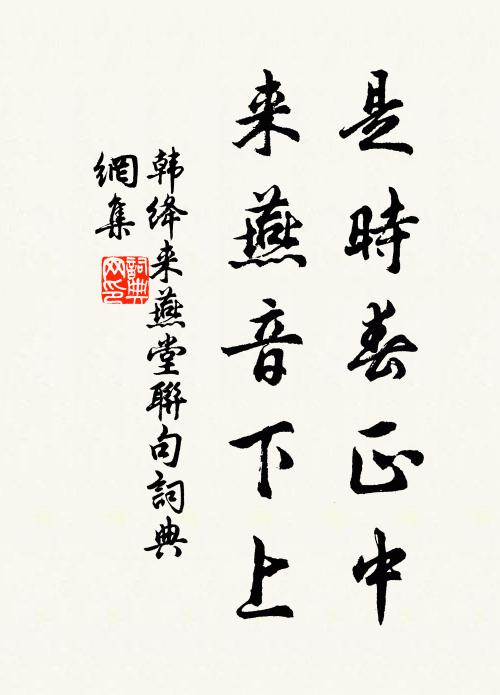 是時春正中
来燕音下上
韩绛来燕堂聯句詞典
網集
詞典
网印